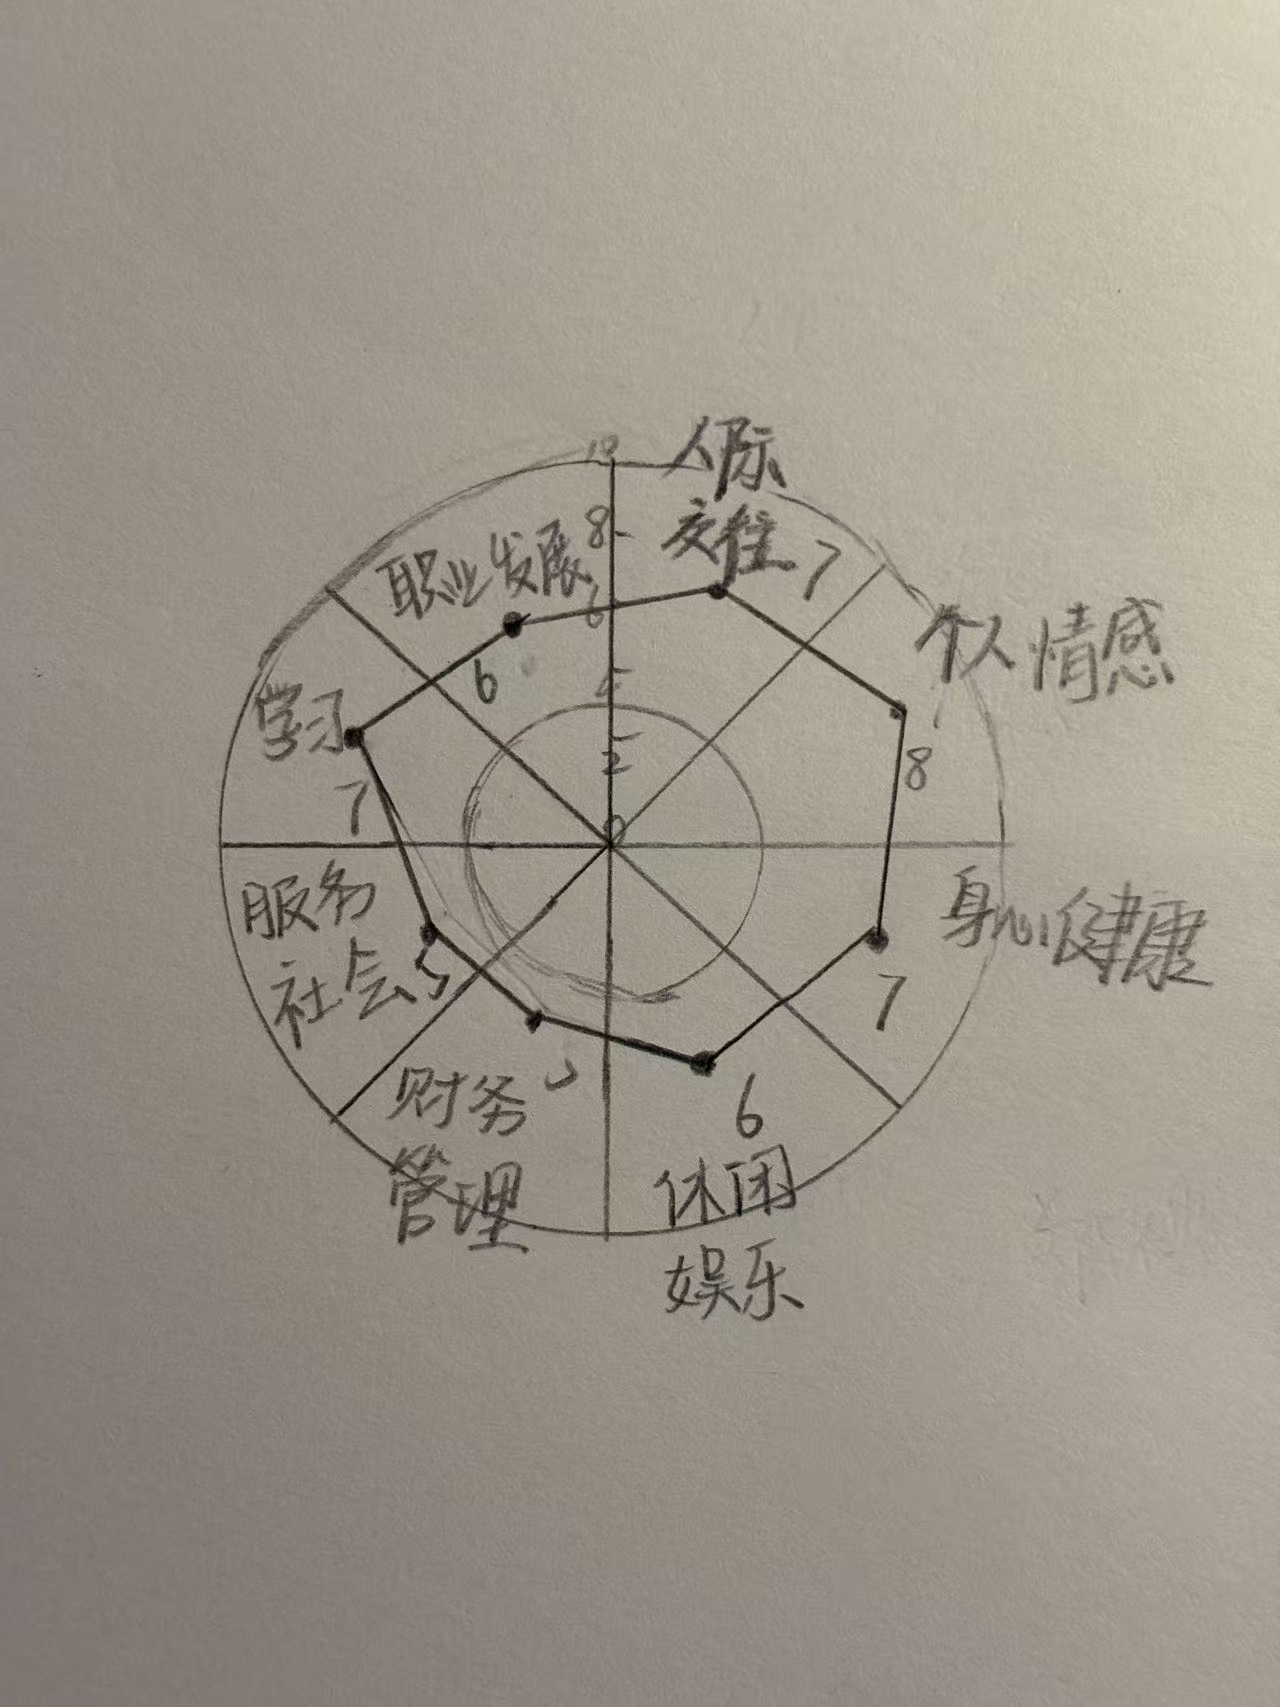 人际
交往 7
10
8
6
4
2
0
职业发展
6
个人情感
8
学习
7
身心健康
7
服务
社会 5
财务
管理
6
休闲
娱乐